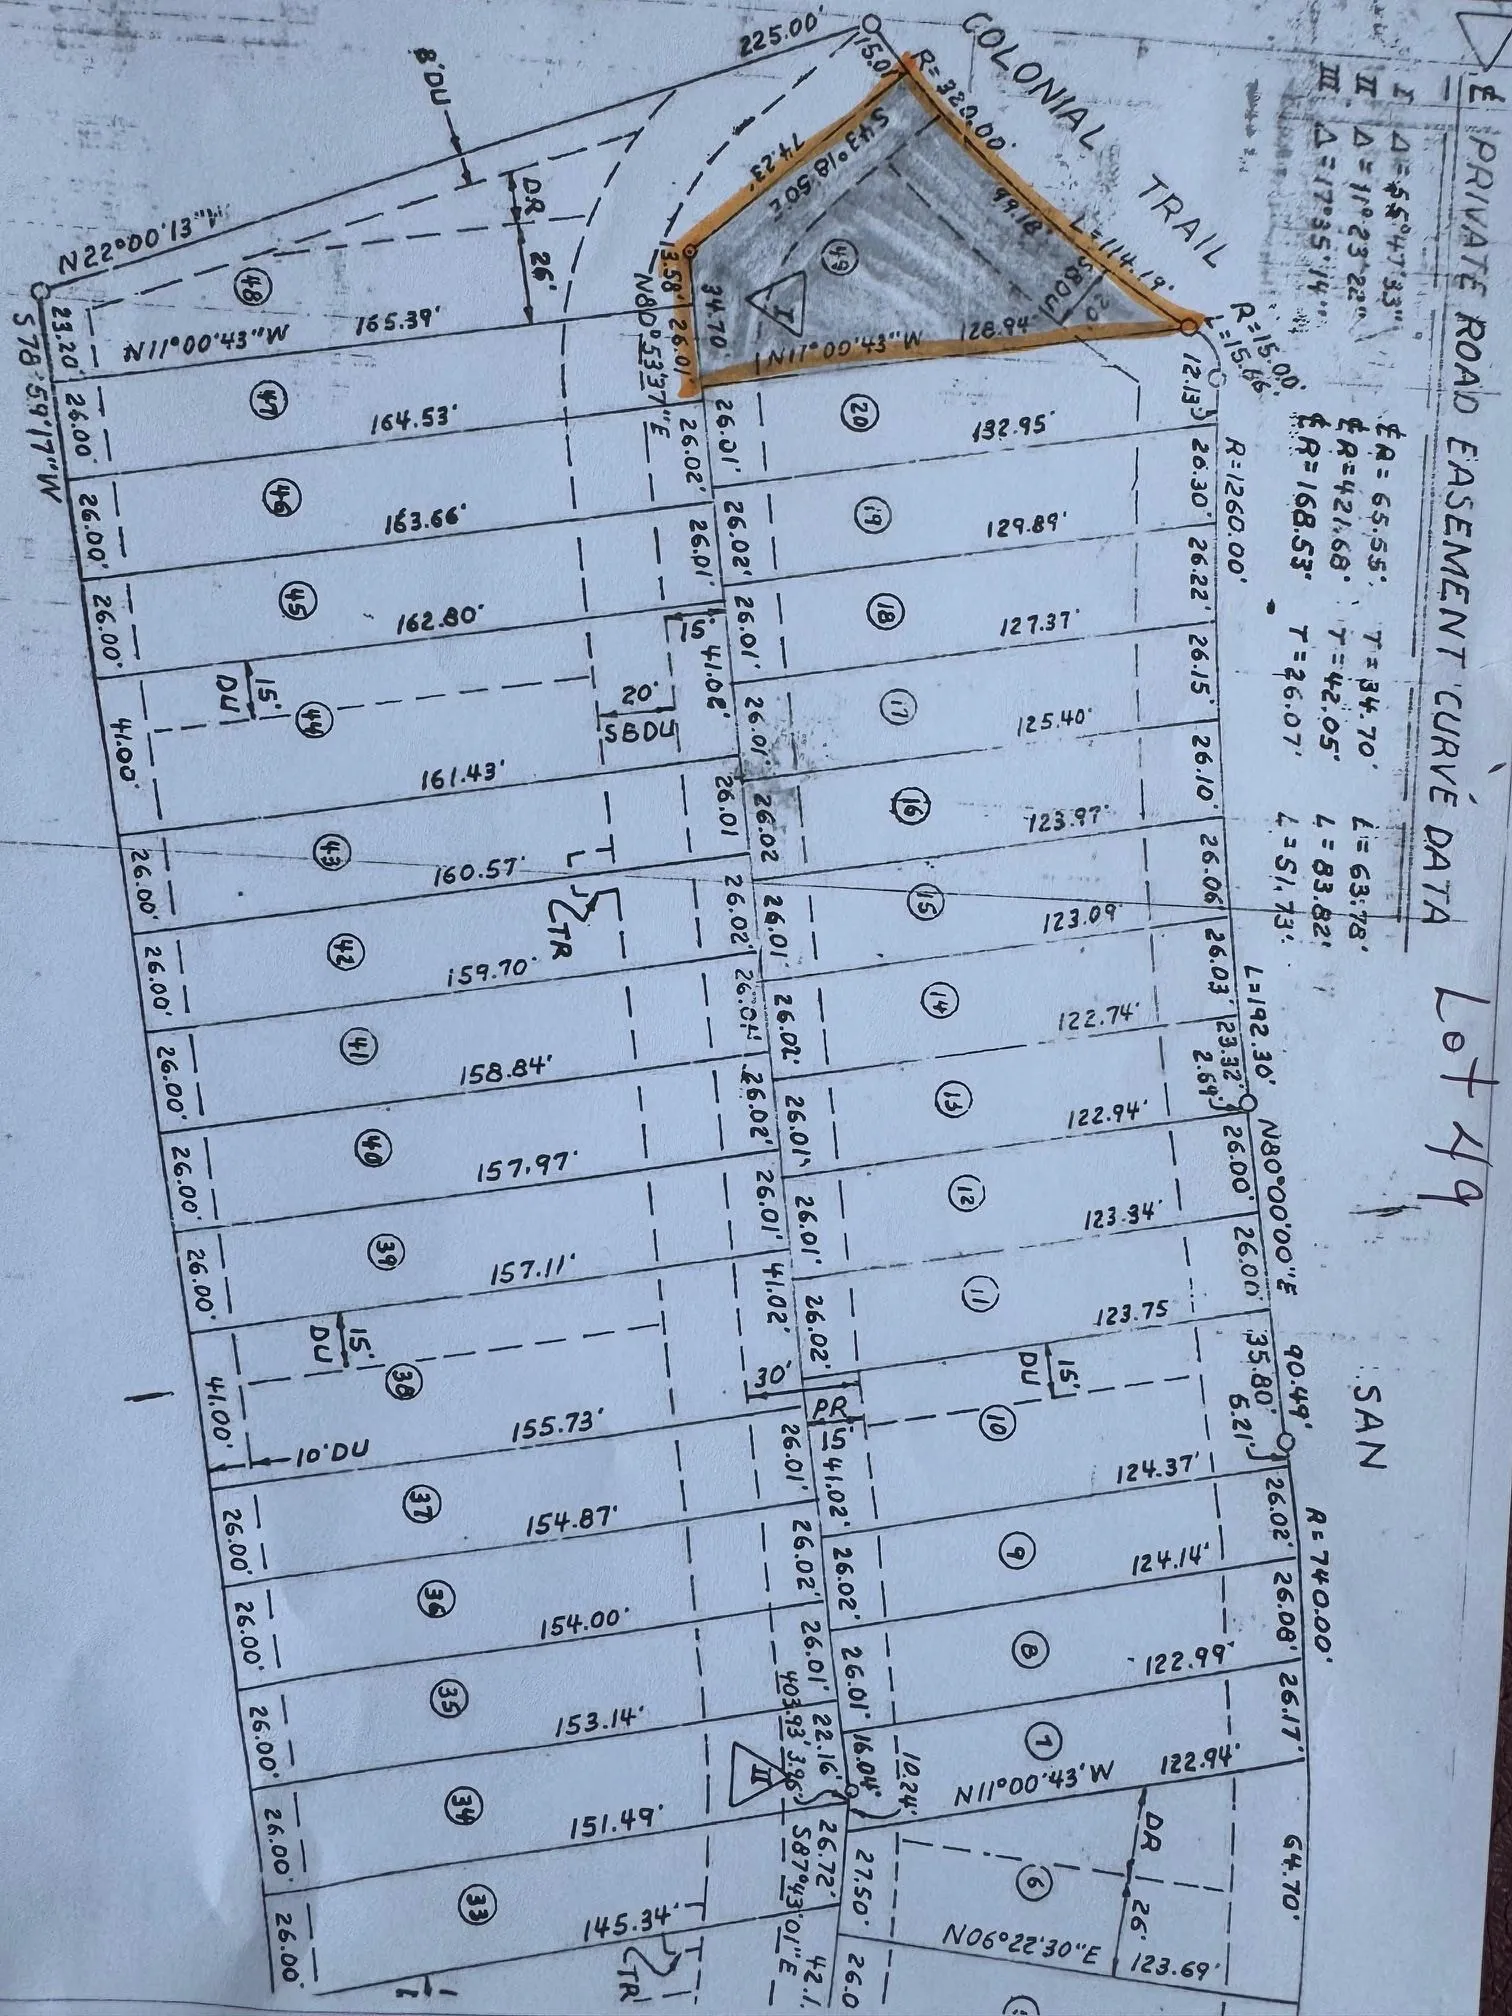 ₵ PRIVATE ROAD EASEMENT CURVE DATA Lot 49
I Δ=55°47'33" ₵R=65.55' T=34.70' L=63.78'
II Δ=11°23'22" ₵R=421.68' T=42.05' L=83.82'
III Δ=17°35'14" ₵R=168.53' T=26.07' L=51.73'
COLONIAL TRAIL
SAN
R=320.00'
L=114.19'
R=15.00'
L=15.66'
R=1260.00'
L=192.30'
N80°00'00"E
90.49'
R=740.00'
225.00'
15.01'
99.18'
12.13'
26.30'
26.22'
26.15'
26.10'
26.06'
26.03'
23.32'
2.69'
26.00'
26.00'
35.80'
5.21'
26.02'
26.08'
26.17'
64.70'
S43°18'50"E
74.23'
49
I
SBDU
20'
34.70'
N11°00'43"W
128.94'
20
132.95'
19
129.89'
18
127.37'
17
125.40'
16
123.97'
15
123.09'
14
122.74'
13
122.94'
12
123.34'
11
123.75
15'
DU
10
124.37'
9
124.14'
8
122.99'
7
122.94'
N11°00'43"W
DR
26'
6
N06°22'30"E
123.69'
26.01'
26.02'
26.01'
26.01'
26.02
26.01'
26.02'
26.01'
26.01'
26.02'
30'
PR
15
41.02'
26.02'
26.01'
16.04'
10.24'
27.50'
26.0
13.58'
26.01'
N80°53'37"E
26.02'
26.01'
15'
41.02'
26.01
26.02'
26.01'
26.02'
26.01'
41.02'
26.01'
26.02'
26.01'
403.93'
22.16'
3.96'
26.72'
S87°43'01"E
42.1
II
8'DU
DR
26'
48
N11°00'43"W
165.39'
47
164.53'
46
163.66'
45
162.80'
15'
DU
44
20'
SBDU
161.43'
43
160.57'
TR
42
159.70'
41
158.84'
40
157.97'
39
157.11'
15'
DU
38
155.73'
10'DU
37
154.87'
36
154.00'
35
153.14'
34
151.49'
33
145.34'
TR
N22°00'13"W
S78°59'17"W
23.20'
26.00'
26.00'
26.00'
41.00'
26.00'
26.00'
26.00'
26.00'
26.00'
41.00'
26.00'
26.00'
26.00'
26.00'
26.00'